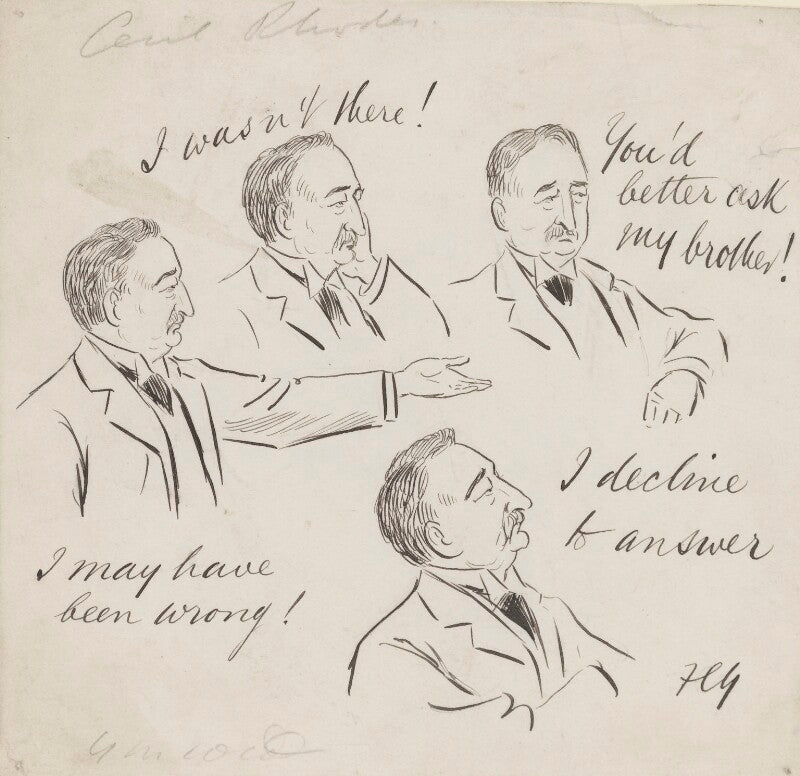 Cecil Rhodes.
I wasn't there!
You'd
better ask
my brother!
I decline
to answer
I may have
been wrong!
FCG